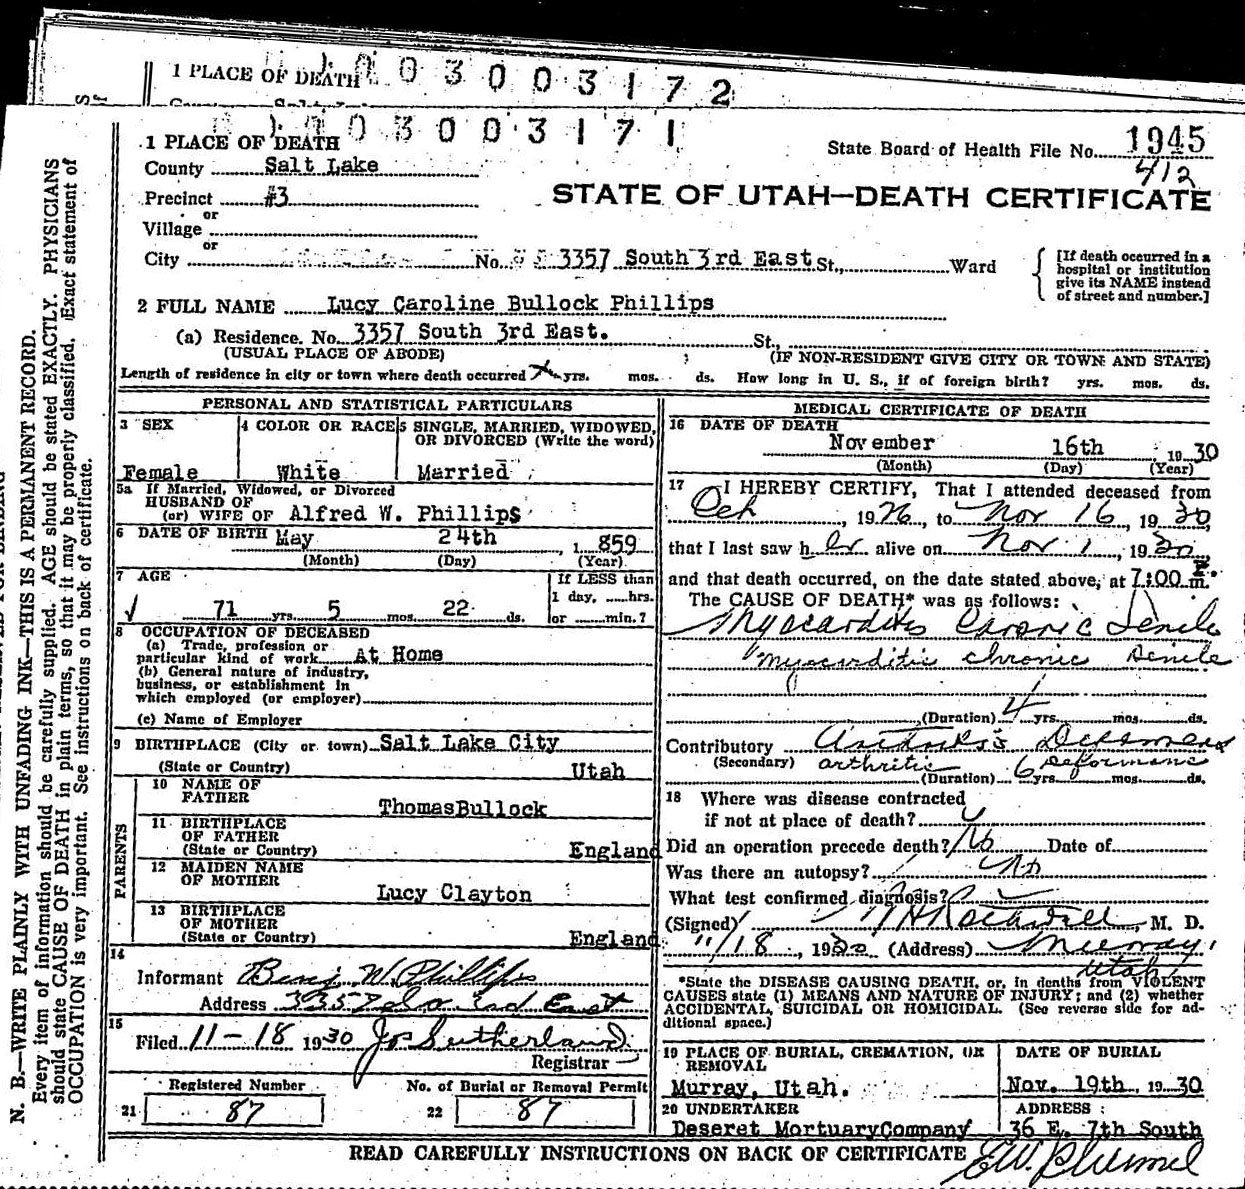 1 PLACE OF DEATH
3003172
3003171
1 PLACE OF DEATH
State Board of Health File No. 1945
412
County Salt Lake
STATE OF UTAH—DEATH CERTIFICATE
Precinct #3
or
Village
or
City No. 3357 South 3rd East St., Ward
[If death occurred in a
hospital or institution
give its NAME instead
of street and number.]
2 FULL NAME Lucy Caroline Bullock Phillips
(a) Residence. No. 3357 South 3rd East. St.,
(USUAL PLACE OF ABODE) (IF NON-RESIDENT GIVE CITY OR TOWN AND STATE)
Length of residence in city or town where death occurred yrs. mos. ds. How long in U. S., if of foreign birth? yrs. mos. ds.
PERSONAL AND STATISTICAL PARTICULARS
3 SEX
Female
4 COLOR OR RACE
White
5 SINGLE, MARRIED, WIDOWED,
OR DIVORCED (Write the word)
Married
5a If Married, Widowed, or Divorced
HUSBAND OF
(or) WIFE OF Alfred W. Phillips
6 DATE OF BIRTH May 24th, 1859
(Month) (Day) (Year)
7 AGE
71 yrs. 5 mos. 22 ds.
If LESS than
1 day, hrs.
or min.?
8 OCCUPATION OF DECEASED
(a) Trade, profession or
particular kind of work At Home
(b) General nature of industry,
business, or establishment in
which employed (or employer)
(c) Name of Employer
9 BIRTHPLACE (City or town) Salt Lake City
(State or Country) Utah
PARENTS
10 NAME OF
FATHER
ThomasBullock
11 BIRTHPLACE
OF FATHER
(State or Country) England
12 MAIDEN NAME
OF MOTHER
Lucy Clayton
13 BIRTHPLACE
OF MOTHER
(State or Country) England
14
Informant Benj W. Phillips
Address 3357 So 3rd East
15
Filed 11-18 1930 Jos Sutherland
Registrar
Registered Number
21 87
No. of Burial or Removal Permit
22 87
MEDICAL CERTIFICATE OF DEATH
16 DATE OF DEATH
November 16th 1930
(Month) (Day) (Year)
17 I HEREBY CERTIFY, That I attended deceased from
1926, to Nov 16, 1930,
that I last saw her alive on Nov 1, 1930,
and that death occurred, on the date stated above, at 7:00 P m.
The CAUSE OF DEATH* was as follows:
Myocarditis Cronic Senile
myocarditis chronic senile
(Duration) 4 yrs. mos. ds.
Contributory Deformans
(Secondary) arthritis deformans
(Duration) 6 yrs. mos. ds.
18 Where was disease contracted
if not at place of death?
Did an operation precede death? No Date of
Was there an autopsy? No
What test confirmed diagnosis?
(Signed) Rothwell, M. D.
11/18, 1930 (Address) Murray,
Utah
*State the DISEASE CAUSING DEATH, or, in deaths from VIOLENT
CAUSES state (1) MEANS AND NATURE OF INJURY; and (2) whether
ACCIDENTAL, SUICIDAL OR HOMICIDAL. (See reverse side for ad-
ditional space.)
19 PLACE OF BURIAL, CREMATION, OR
REMOVAL
Murray, Utah.
DATE OF BURIAL
Nov. 19th, 1930
20 UNDERTAKER
Deseret MortuaryCompany
ADDRESS
36 E. 7th South
READ CAREFULLY INSTRUCTIONS ON BACK OF CERTIFICATE
N. B.—WRITE PLAINLY WITH UNFADING INK—THIS IS A PERMANENT RECORD.
Every item of information should be carefully supplied. AGE should be stated EXACTLY. PHYSICIANS
should state CAUSE OF DEATH in plain terms, so that it may be properly classified. Exact statement of
OCCUPATION is very important. See instructions on back of certificate.